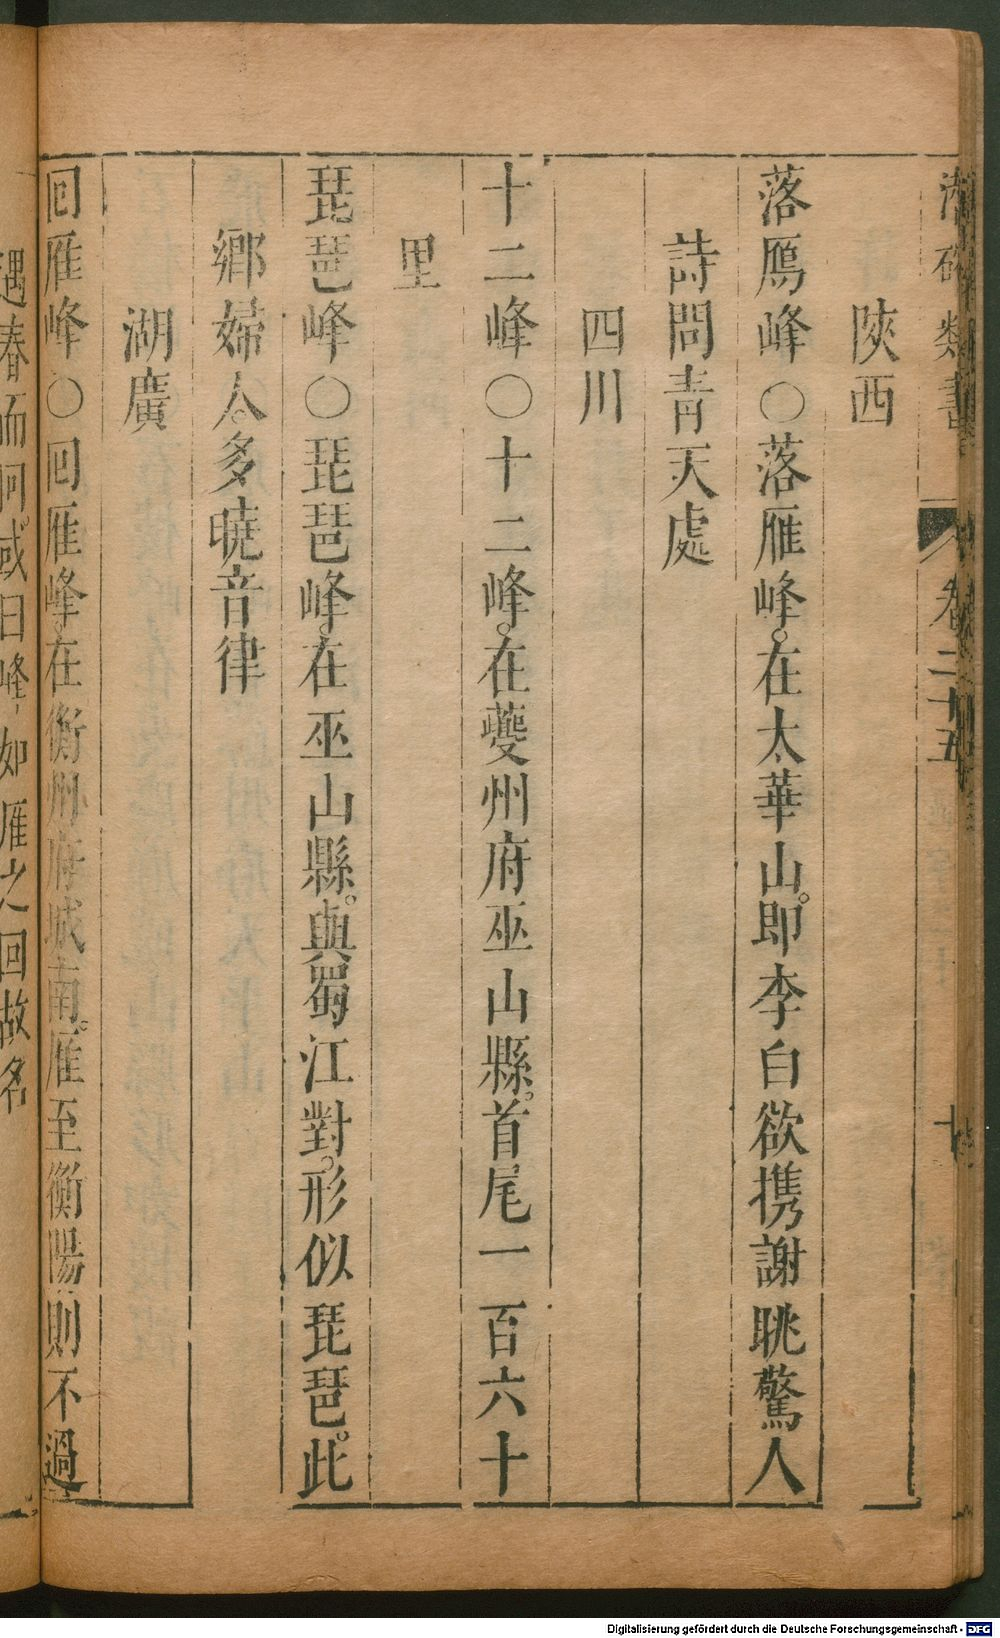 潛確類書 卷二十五 十
陝西
落鴈峰○落雁峰。在太華山。即李白欲携謝眺驚人
詩問青天處
四川
十二峰○十二峰。在夔州府巫山縣。首尾一百六十
里
琵琶峰○琵琶峰。在巫山縣。與蜀江對。形似琵琶。此
鄉婦人。多曉音律
湖廣
回雁峰○回雁峰。在衡州府城南。雁至衡陽。則不過
遇春而回。或曰峰。如雁之回故名
Digitalisierung gefördert durch die Deutsche Forschungsgemeinschaft - DFG